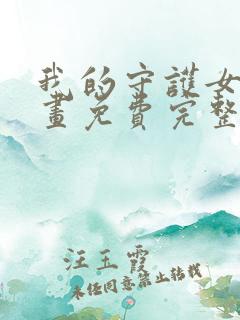 我的守護女
畫免費完整
汪玉霞
未经同意禁止转载